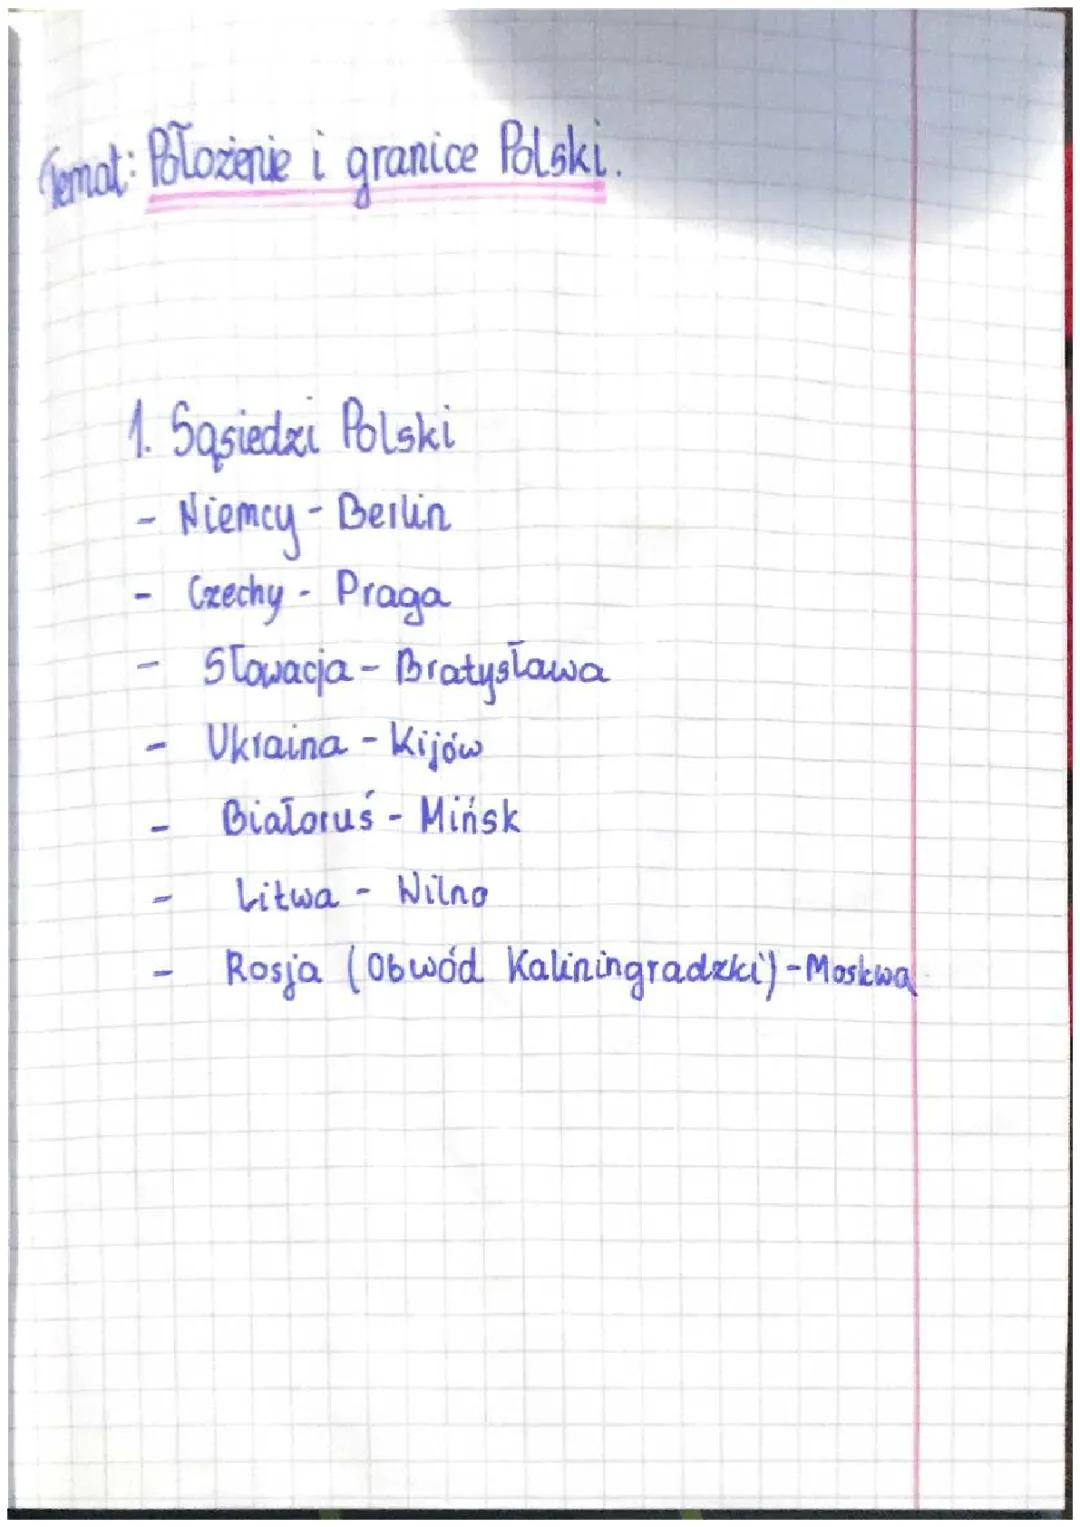 Temat: Położenie i granice Polski.
1. Sąsiedzi Polski
- Niemcy - Berlin
- Czechy - Praga
- Słowacja - Bratysława
- Ukraina - Kijów
- Białoruś - Mińsk
- Litwa - Wilno
- Rosja (Obwód Kaliningradzki) - Moskwa